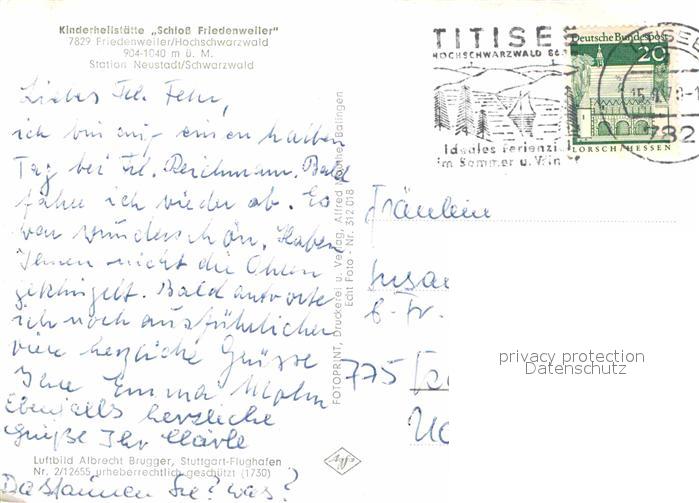 Kinderheilstätte „Schloß Friedenweiler"
7829 Friedenweiler/Hochschwarzwald
904-1040 m ü. M.
Station Neustadt/Schwarzwald
Liebes Frl. Fehr,
ich bin auf einen halben
Tag bei Frl. Reichmann. Bald
fahre ich wieder ab. Es
war wunderschön. Haben
Ihnen nicht die Ohren
geklingelt. Bald antworte
ich noch ausführlicher
viele herzliche Grüsse
Ihre Emma
Ebenfalls herzliche
Grüße Ihr
Luftbild Albrecht Brugger, Stuttgart-Flughafen
Nr. 2/12655 urheberrechtlich geschützt (1730)
Da staunen Sie? was?
FOTOPRINT, Druckerei u. Verlag, Alfred Balingen
Echt Foto - Nr. 312 018
TITISEE
HOCHSCHWARZWALD
Ideales Ferienzi
im Sommer u. Win
Deutsche Bundespost
20
LORSCH/HESSEN
782
Fräulein
775
privacy protection
Datenschutz